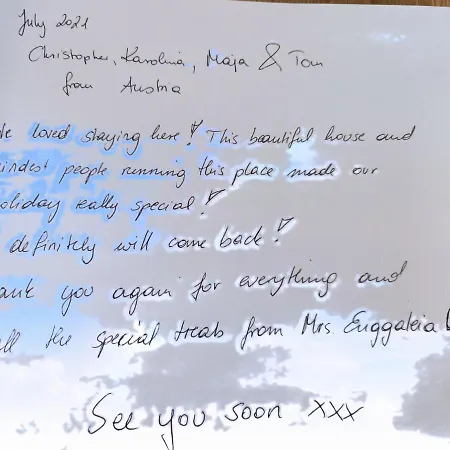 July 2021
Christopher, Karolina, Maja & Tom
from Austria
loved staying here! This beautiful house and
kindest people running this place made our
holiday really special!
definitely will come back!
thank you again for everything and
all the special treats from Mrs.
See you soon xxx